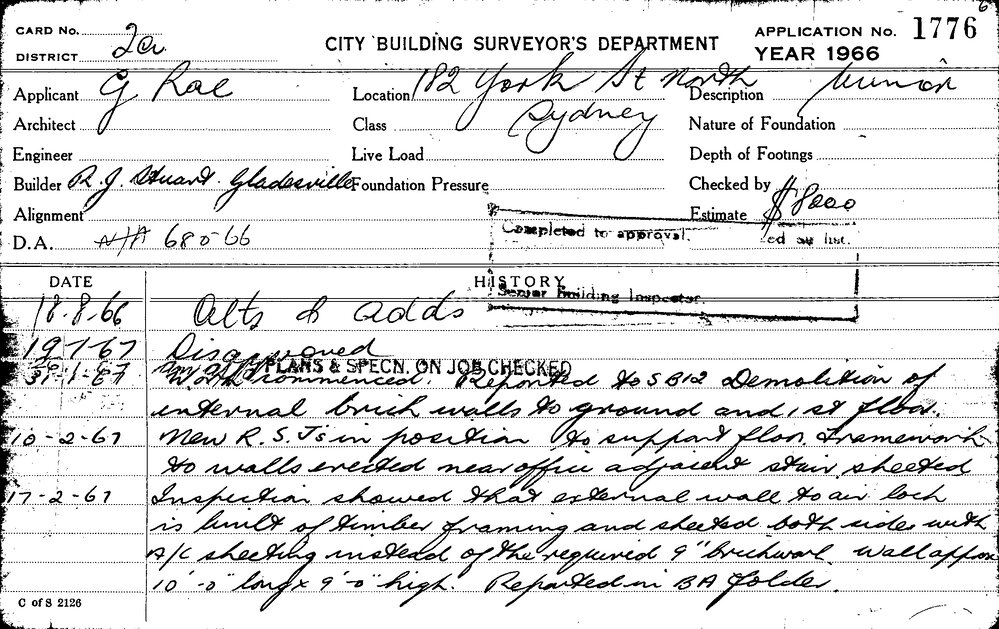 6
CARD No. 2a
APPLICATION No. 1776
DISTRICT
CITY BUILDING SURVEYOR'S DEPARTMENT
YEAR 1966
Applicant G Rae
Location 182 York St North
Description
Architect
Class Sydney
Nature of Foundation
Engineer
Live Load
Depth of Footings
Builder R. J. Stuart. Gladesville
Foundation Pressure
Checked by
Alignment
Estimate $8000
D.A. N/A 680-66
Completed to approval.
ed as list.
DATE
HISTORY
Senior Building Inspector.
18.8.66 Alts & adds
19-1-67 Disapproved
PLANS & SPECN. ON JOB CHECKED
31-1-67 Work commenced. Reported to SB12 Demolition of
internal brick walls to ground and 1st floor.
10-2-67 New R.S.J's in position to support floor. Framework
to walls erected near office adjacent stair sheeted
17-2-67 Inspection showed that external wall to air lock
is built of timber framing and sheeted both sides with
A/C sheeting instead of the required 9" brickwork. Wall approx
10'-0" long x 9'-0" high. Reported in BA folder.
C of S 2126